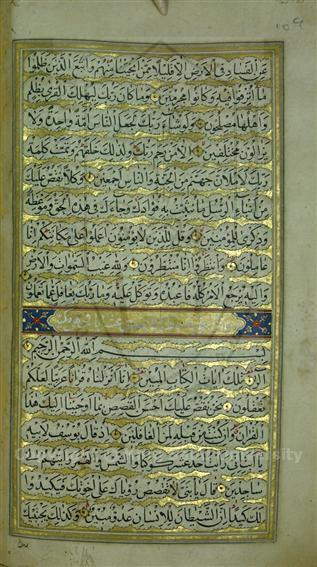 عن الفساد في الارض الا قليلا ممن انجينا منهم واتبع الذين ظلموا
ما اترفوا فيه وكانوا مجرمين وما كان ربك ليهلك القرى بظلم
واهلها مصلحون ولو شاء ربك لجعل الناس امة واحدة ولا
يزالون مختلفين الا من رحم ربك ولذلك خلقهم وتمت كلمة
ربك لاملان جهنم من الجنة والناس اجمعين وكلا نقص عليك
من انباء الرسل ما نثبت به فؤادك وجاءك في هذه الحق وموعظة
وذكرى للمؤمنين وقل للذين لا يؤمنون اعملوا على مكانتكم انا
عاملون وانتظروا انا منتظرون ولله غيب السموات والارض
واليه يرجع الامر كله فاعبده وتوكل عليه وما ربك بغافل عما تعملون
بسم الله الرحمن الرحيم
الر تلك ايات الكتاب المبين انا انزلناه قرانا عربيا لعلكم
تعقلون نحن نقص عليك احسن القصص بما اوحينا اليك هذا
القران وان كنت من قبله لمن الغافلين اذ قال يوسف لابيه
يا ابت اني رايت احد عشر كوكبا والشمس والقمر رايتهم لي
ساجدين قال يا بني لا تقصص رؤياك على اخوتك فيكيدوا
لك كيدا ان الشيطان للانسان عدو مبين وكذلك يجتبيك